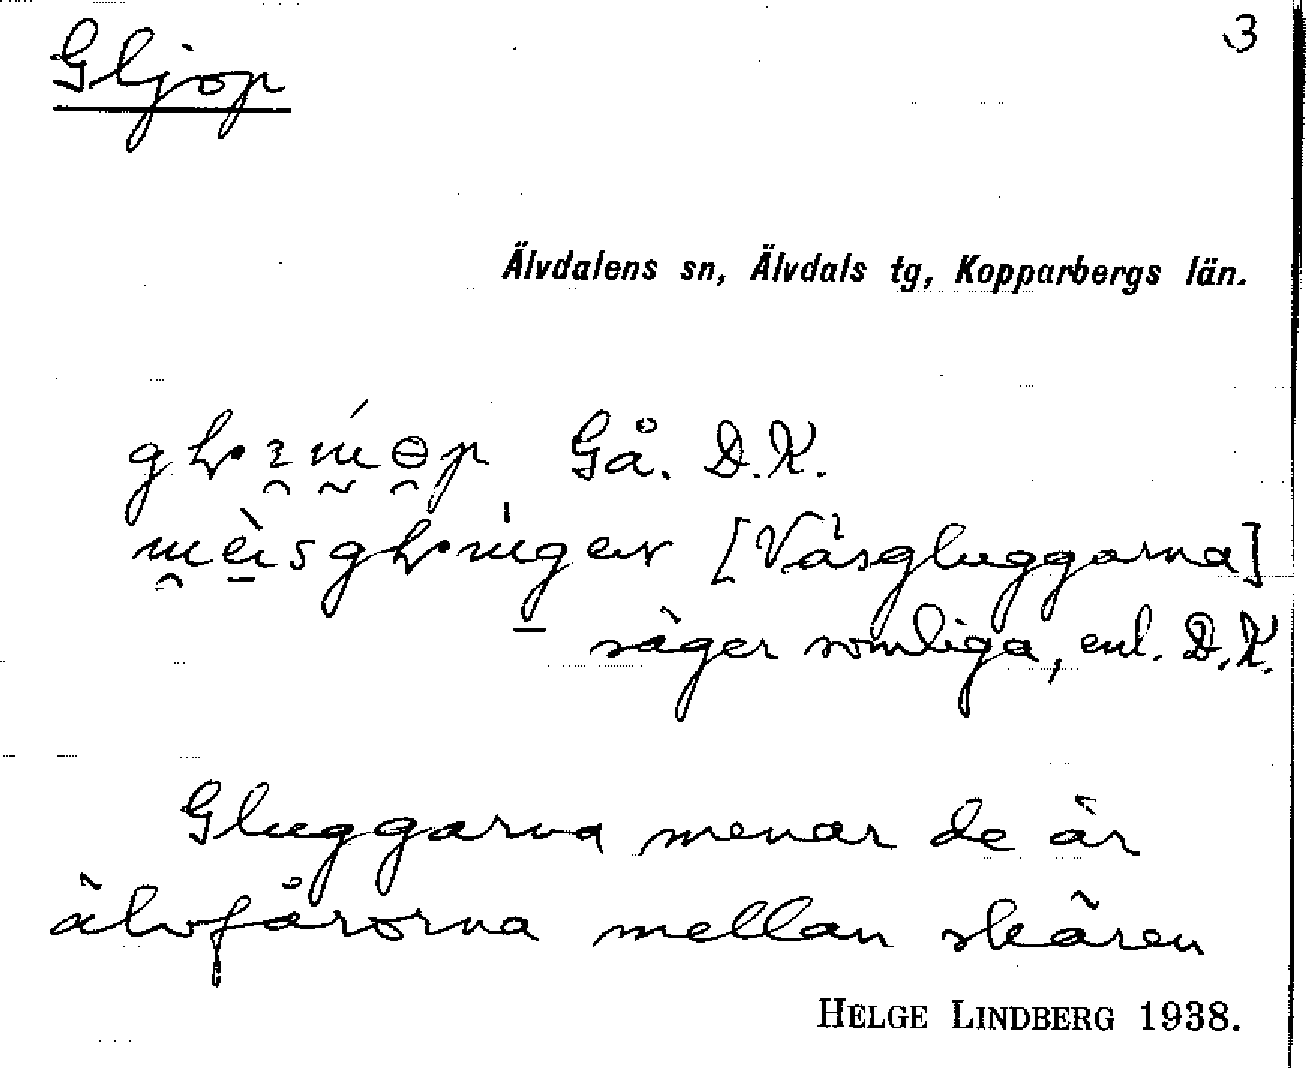 3
Gljop
Älvdalens sn, Älvdals tg, Kopparbergs län.
Gå. D.K.
[Väsgluggarna]
säger somliga, enl. D.K.
Gluggarna menar de är
älvfårorna mellan skären
HELGE LINDBERG 1938.